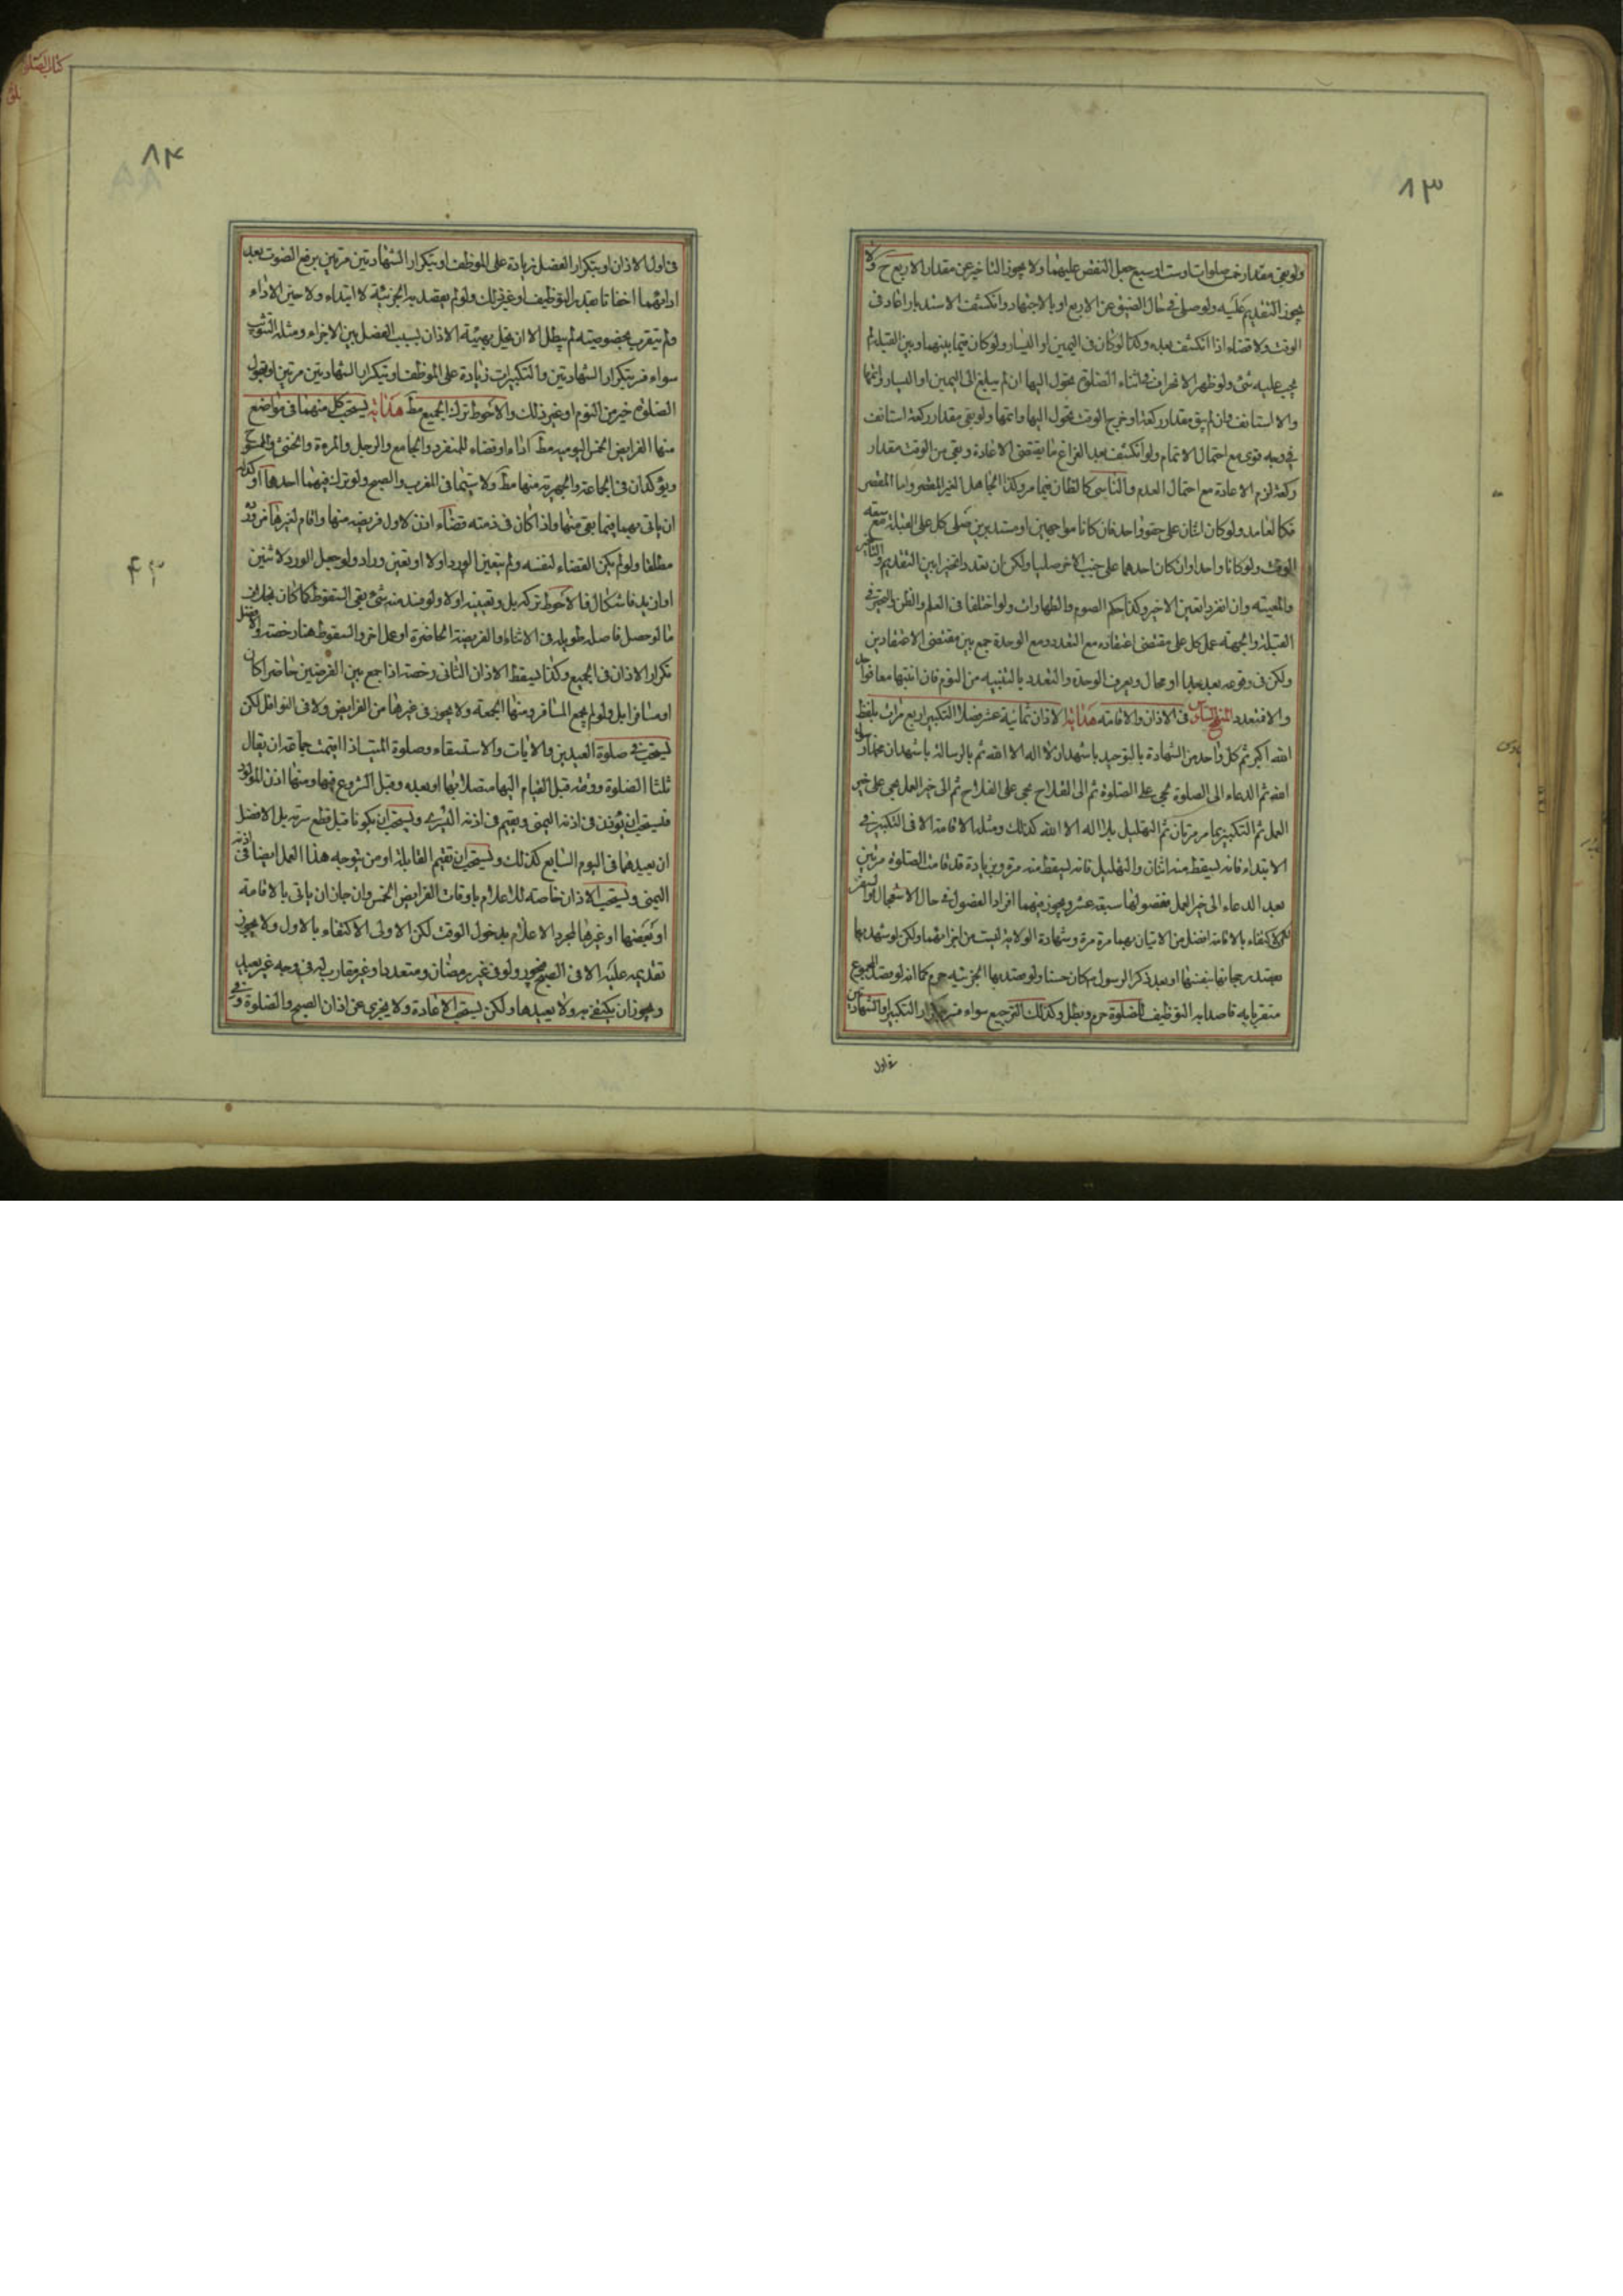 ٨٣
ولو بقى مقدار خمس صلوات او ست او سبع جعل النقص عليهما ولا يجوز التاخير عن مقدار الاربع ح ولا
يجوز التقديم عليه ولو صلى فى حال الضيق عن الاربع او بالاجتهاد وانكشف الاستدبار اعاد فى
الوقت ولا قضاء اذا انكشف بعده وكذا لو كان فى اليمين او اليسار ولو كان فيما بينهما وبين القبلة لم
يجب عليه شئ ولو ظهر الانحراف فى اثناء الصلوة تحول اليها ان لم يبلغ الى اليمين او اليسار واتمها
والا استانف وان لم يبق مقدار ركعة او خرج الوقت تحول اليها واتمها ولو بقى مقدار ركعة استانف
فى وجه قوى مع احتمال الاتمام ولو انكشف بعد الفراغ ما يقتضى الاعادة وبقى من الوقت مقدار
ركعة لزم الاعادة مع احتمال العدم والناسى كالظان فيما مر وكذا الجاهل الغير المقصر واما المقصر
فكالعامد ولو كان اثنان على حقو واحد فان كانا مواجهين او مستدبرين صلى كل على القبلة مع سعة
الوقت ولو كانا واحدا وان كان احدهما على جنب الاخر صليا ولكن ان تعددا تخيرا بين التقديم والتاخير
والمعية وان انفردا تعين الاخير وكذا حكم الصوم والطهارات ولو اختلفا فى العلم والظن والتحير فى
القبلة والجهة عمل كل على مقتضى اعتقاده مع التعدد ومع الوحدة جمع بين مقتضى الاعتقادين
ولكن فى وقوعه بعد بعيد او محال ويعرف الوحدة والتعدد بالتنبيه من النوم فان انتبها معا فواحد
والا فتعدد المنهج السادس فى الاذان والاقامة هداية الاذان ثمانية عشر فصلا التكبير اربع مرات بلفظ
الله اكبر ثم كل واحد من الشهادة بالتوحيد باشهد ان لا اله الا الله ثم بالرسالة باشهد ان محمدا رسول
الله ثم الدعاء الى الصلوة بحى على الصلوة ثم الى الفلاح بحى على الفلاح ثم الى خير العمل بحى على خير
العمل ثم التكبير بما مر مرتان ثم التهليل بلا اله الا الله كذلك ومثله الاقامة الا فى التكبير فى
الابتداء فانه ليسقط منه اثنان والتهليل فانه ليسقط منه مرة وبزيادة قد قامت الصلوة مرتين
بعد الدعاء الى خير العمل ففصولها سبعة عشر ويجوز فيهما افراد الفصول فى حال الاستعجال والسفر
لكن الاكتفاء بالاقامة افضل من الاتيان بهما مرة مرة وشهادة الولاية ليست من اجزائهما ولكن لو شهد بها
بقصد رجحانها بنفسها او بعد ذكر الرسول ص كان حسنا ولو قصد بها الجزئية حرم كما انه لو قصد المجموع
متقربا به قاصدا به التوظيف للصلوة حرم وبطل وكذلك الترجيع سواء فسر بتكرار التكبير او الشهادتين
فى اول
٨٤
فى اول الاذان او بتكرار الفصل زيادة على الموظف او بتكرار الشهادتين مرتين برفع الصوت بعد
ادائهما اخفاتا بقصد التوظيف او غير ذلك ولو لم يقصد به الجزئية لا ابتداء ولا حين الاداء
ولم يتقرب بخصوصيته لم يبطل الا ان يخل بهيئة الاذان بسبب الفصل بين الاجزاء ومثله التثويب
سواء فسر بتكرار الشهادتين والتكبيرات زيادة على الموظف او بتكرار الشهادتين مرتين او بقول
الصلوة خير من النوم او غير ذلك والاحوط ترك الجميع مط هداية يستحب كل منهما فى مواضع
منها الفرايض الخمس اليومية مط اداء او قضاء للمنفرد والجامع والرجل والمرءة والخنثى والممسوح
ويؤكدان فى الجماعة والجهرية منها مط ولا سيما فى المغرب والصبح ولو ترك فيهما احدهما او كليهما
ان ياتى بهما فيما بقى منها واذا كان فى ذمته قضاء اذن لاول فريضة منها واقام لغيرها من ورده
مطلقا ولو لم يكن القضاء لنفسه ولم يتعين الورد اولا او تعين وزاد ولو جعل الورد لاثنين
او ازيد فاشكال فالاحوط تركه بل وتعيينه اولا ولو فسد منه شئ بقى السقوط كما كان بخلاف
ما لو حصل فاصلة طويلة فى الاثناء والفريضة الحاضرة او عمل اخر والسقوط هنا رخصة والافضل
تكرار الاذان فى الجميع وكذا ليسقط الاذان الثانى رخصة اذا جمع بين الفرضين حاضرا كان
او مسافرا بل ولو لم يجمع المسافر ومنها الجمعة ولا يجوز فى غيرها من الفرايض ولا فى النوافل لكن
يستحب فى صلوة العيدين والايات والاستسقاء وصلوة الميت اذا اقيمت جماعة ان يقال
ثلثا الصلوة ووقته قبل القيام اليها متصلا بها او بعده وقبل الشروع فيها ومنها اذن المولود
فيستحب ان يؤذن فى اذنه اليمنى ويقيم فى اذنه اليسرى ويستحب ان يكونا قبل قطع سرته بل الافضل
ان يعيدهما فى اليوم السابع كذلك ويستحب ان تقيم القابلة او من يتوجه هذا العمل ايضا فى اذنه
اليمنى ويستحب الاذان خاصة للاعلام باوقات الفرايض الخمس وان جاز ان ياتى بالاقامة
او بعضها او غيرها لمجرد الاعلام بدخول الوقت لكن الاولى الاكتفاء بالاول ولا يجوز
تقديمه عليه الا فى الصبح فيجوز ولو فى غير رمضان ومتعددا وغير مقارب له فى وجه غير بعيد
ويجوز ان يكتفى به ولا يعيدها ولكن يستحب الاعادة ولا يجزى عن اذان الصبح والصلوة وفى